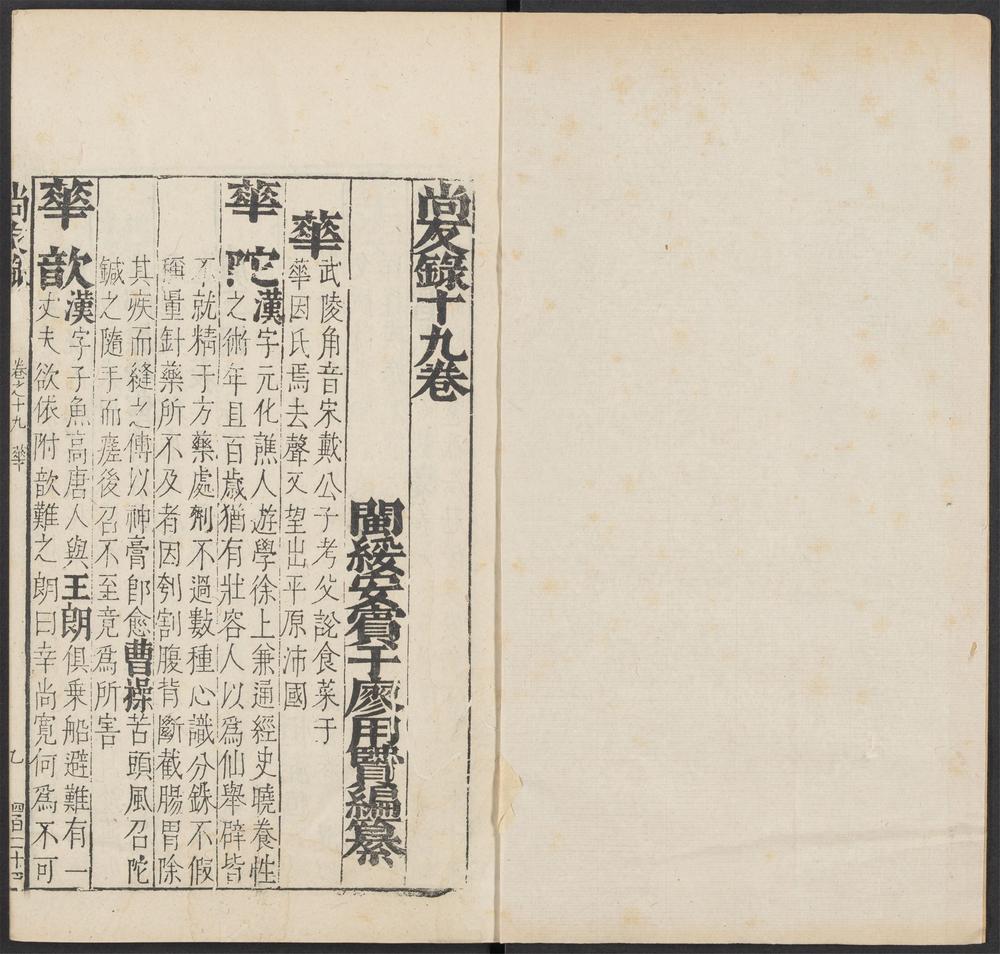 尚友錄十九卷
閩綏安賓于廖用賢編纂
華
武陵角音宋戴公子考父說食菜于
華因氏焉去聲又望出平原沛國
華陀
漢字元化譙人遊學徐上兼通經史曉養性
之術年且百歲猶有壯容人以爲仙舉辟皆
不就精于方藥處劑不過數種心識分銖不假
稱量針藥所不及者因刳割腹背斷截腸胃除
其疾而縫之傅以神膏卽愈曹操苦頭風召陀
鍼之隨手而瘥後召不至竟爲所害
華歆
漢字子魚高唐人與王朗俱乗船避難有一
丈夫欲依附歆難之朗曰幸尚寬何爲不可
尚友錄
卷之十九
華
乙
四百二十四